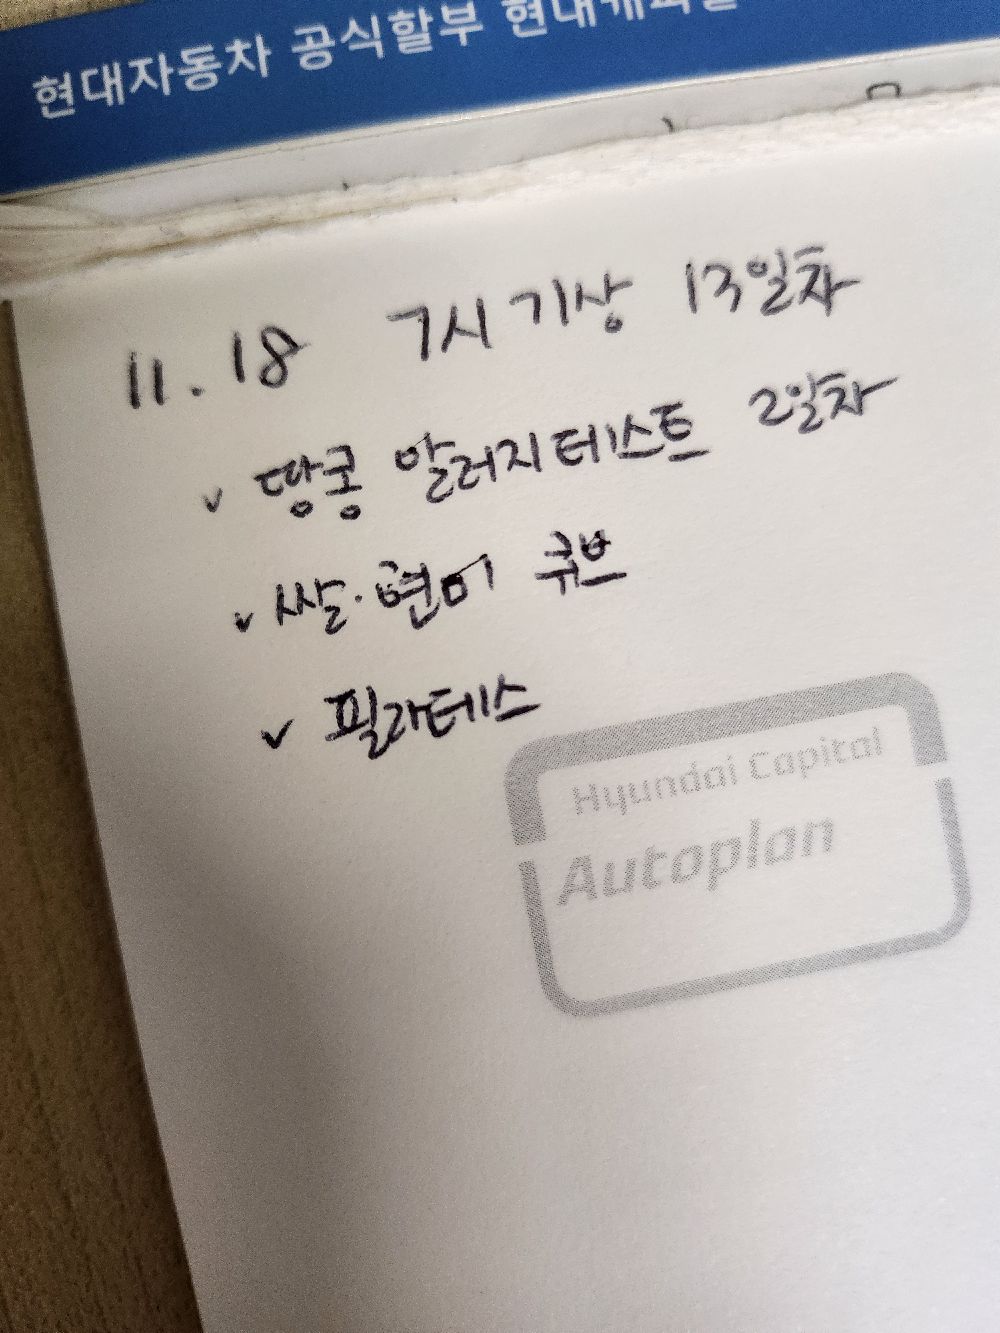 현대자동차 공식할부 현대캐피탈
11.18 7시 기상 13일차
v 땅콩 알러지테스트 2일차
v 쌀·현미 큐브
v 필라테스
Hyundai Capital
Autoplan